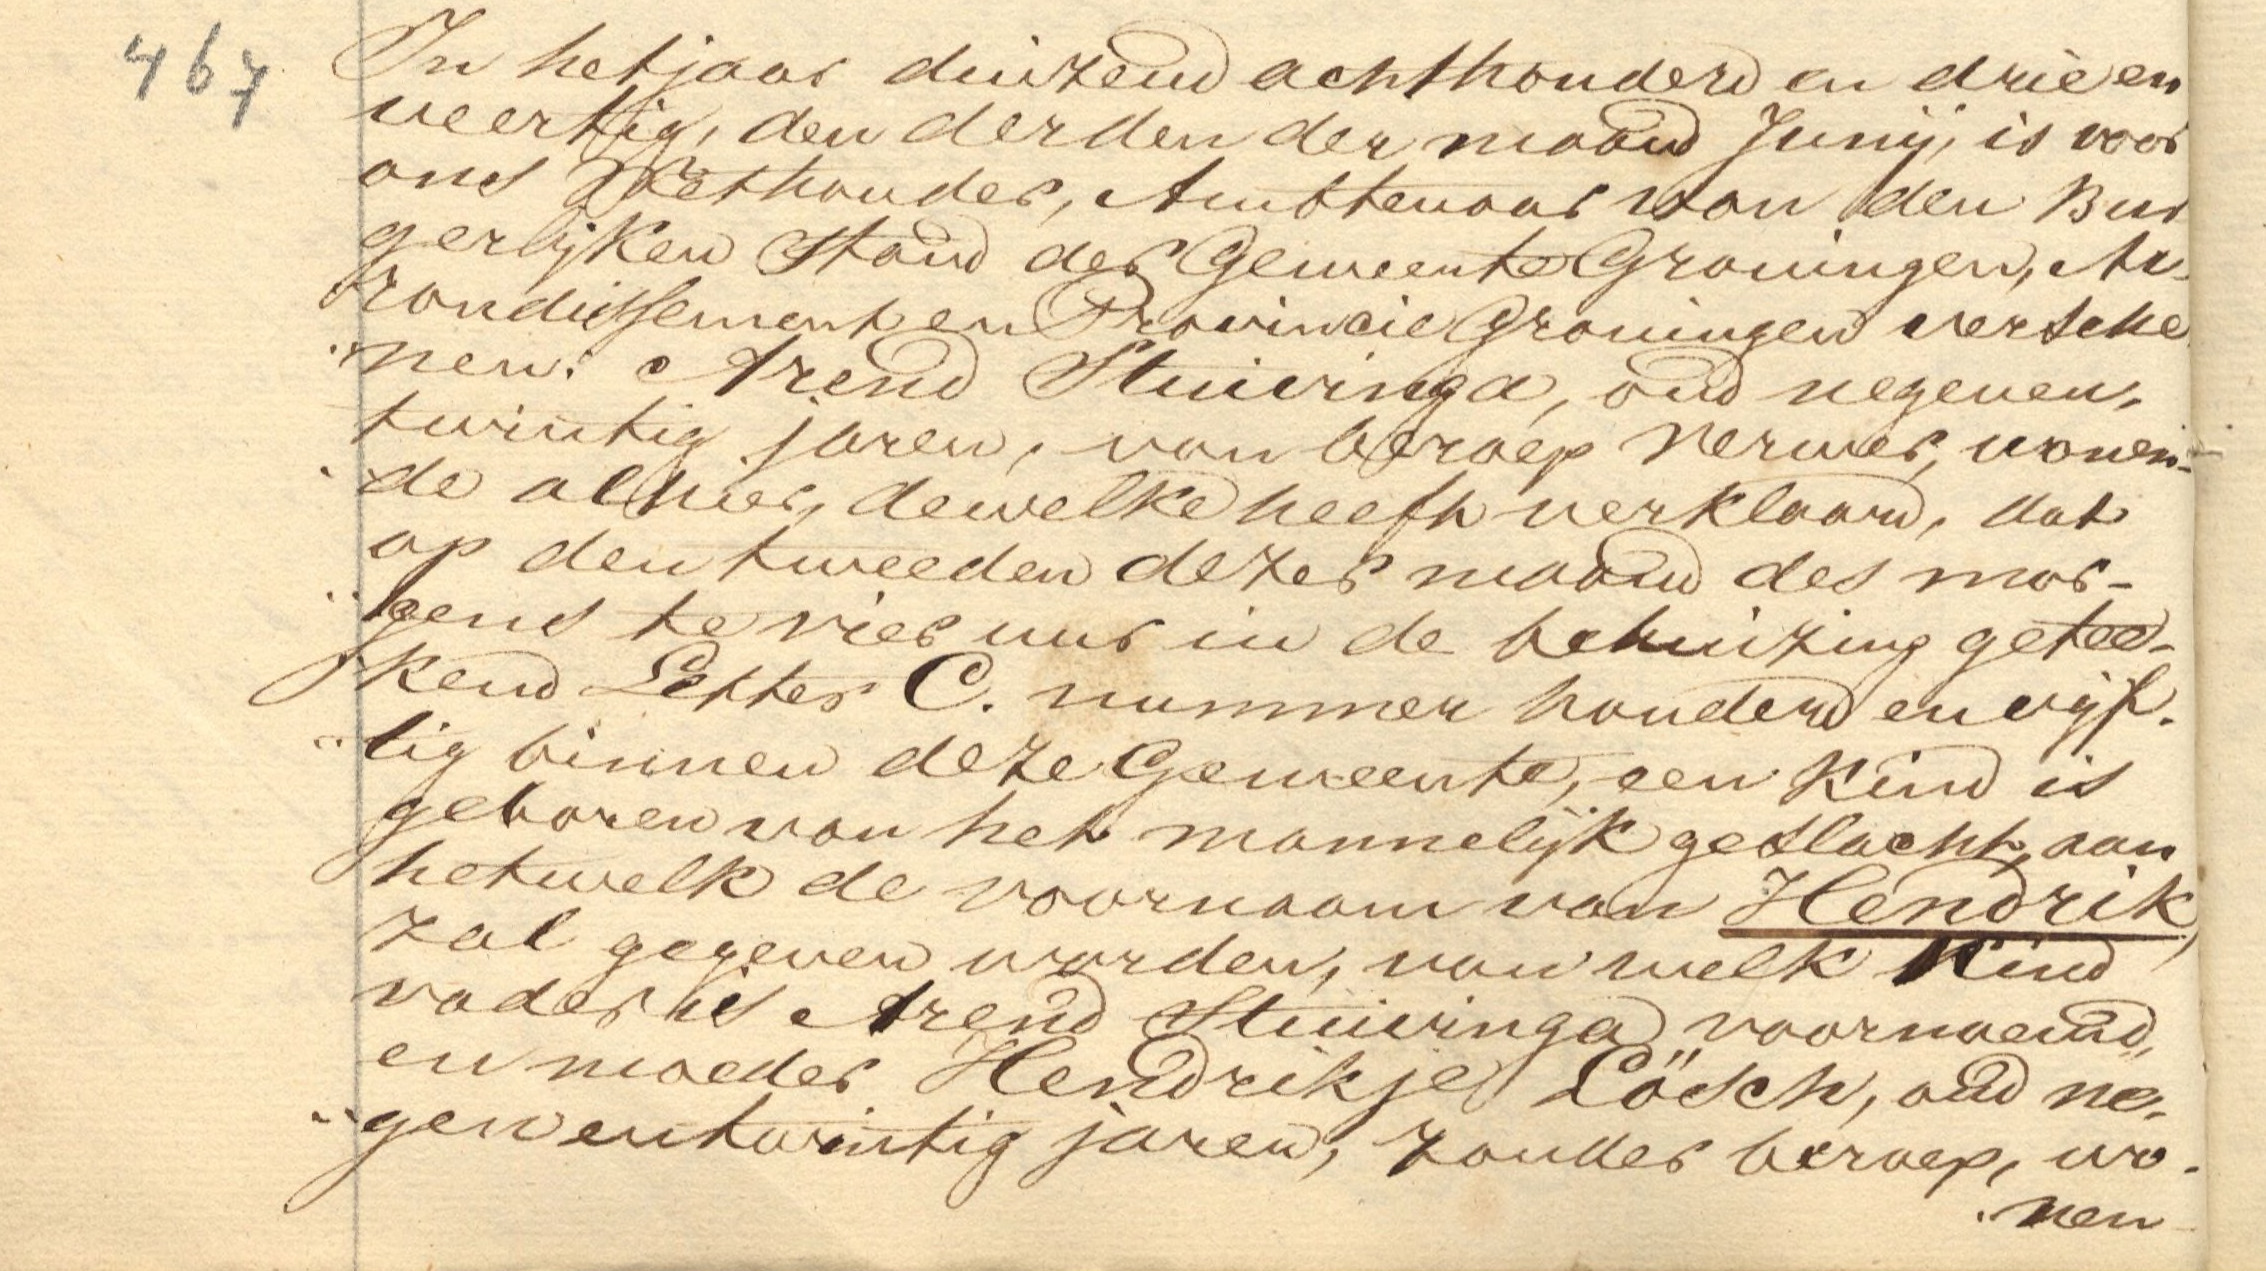 467
In het jaar duizend achthonderd en drie en
veertig, den derden der maand Junij, is voor
ons Wethouder, Ambtenaar van den Bur
gerlijken Stand der Gemeente Groningen, Ar-
rondissement en Provincie Groningen versche
nen: Arend Stuivinga, oud negenen,
twintig jaren, van beroep Verwer, wonen-
de alhier, dewelke heeft verklaard, dat
op den tweeden dezer maand des mor-
gens te vier uur in de behuizing getee-
kend Letter C. nummer honderd en vijf.
tig binnen deze Gemeente, een Kind is
geboren van het mannelijk geslacht, aan
hetwelk de voornaam van Hendrik,
zal gegeven worden, van welk Kind
vader is Arend Stuivinga voornoemd,
en moeder Hendrikje Lösch, oud ne,
genentwintig jaren, zonder beroep, wo.
nen